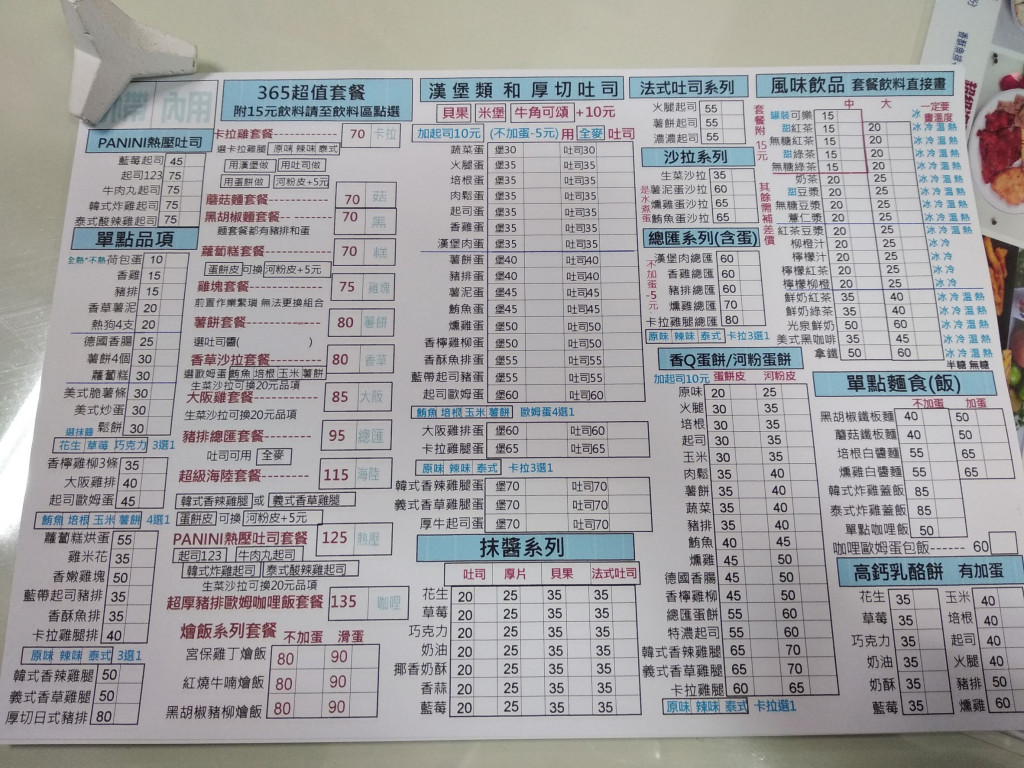 外帶 內用
PANINI熱壓吐司
藍莓起司 45
起司123 75
牛肉丸起司 75
韓式炸雞起司 75
泰式酸辣雞起司 75
單點品項
全熱*不熱 荷包蛋 10
香雞 15
豬排 15
香草薯泥 20
熱狗4支 20
德國香腸 25
薯餅4個 30
蘿蔔糕 30
美式脆薯條 30
美式炒蛋 30
選抹醬 鬆餅 30
花生 草莓 巧克力 3選1
香檸雞柳3條 35
大阪雞排 40
起司歐姆蛋 45
鮪魚 培根 玉米 薯餅 4選1
蘿蔔糕烘蛋 55
雞米花 35
香嫩雞塊 50
藍帶起司豬排 35
香酥魚排 35
卡拉雞腿排 40
原味 辣味 泰式 3選1
韓式香辣雞腿 50
義式香草雞腿 50
厚切日式豬排 80
365超值套餐
附15元飲料請至飲料區點選
卡拉雞套餐 70 卡拉
選卡拉雞腿 原味 辣味 泰式
用漢堡做 用吐司做
用蛋餅做 河粉+5元
蘑菇麵套餐 70 菇
黑胡椒麵套餐 70 黑
麵套餐都有豬排和蛋
蘿蔔糕套餐 70 糕
蛋餅皮 可換 河粉皮+5元
雞塊套餐 75 雞塊
前置作業繁瑣 無法更換組合
薯餅套餐 80 薯餅
選吐司醬( )
香草沙拉套餐 80 香草
選歐姆蛋 鮪魚 培根 玉米 薯餅
生菜沙拉可換20元品項
大阪雞套餐 85 大阪
生菜沙拉可換20元品項
豬排總匯套餐 95 總匯
吐司可用 全麥
超級海陸套餐 115 海陸
韓式香辣雞腿 或 義式香草雞腿
蛋餅皮 可換 河粉皮+5元
PANINI熱壓吐司套餐 125 熱壓
起司123 牛肉丸起司
韓式炸雞起司 泰式酸辣雞起司
生菜沙拉可換20元品項
超厚豬排歐姆咖哩飯套餐 135 咖哩
燴飯系列套餐 不加蛋 滑蛋
宮保雞丁燴飯 80 90
紅燒牛腩燴飯 80 90
黑胡椒豬柳燴飯 80 90
漢堡類 和 厚切吐司
貝果 米堡 牛角可頌 +10元
加起司10元 (不加蛋-5元) 用 全麥 吐司
蔬菜蛋 堡30 吐司30
火腿蛋 堡35 吐司35
培根蛋 堡35 吐司35
肉鬆蛋 堡35 吐司35
起司蛋 堡35 吐司35
香雞蛋 堡35 吐司35
漢堡肉蛋 堡35 吐司35
薯餅蛋 堡40 吐司40
豬排蛋 堡40 吐司40
薯泥蛋 堡45 吐司45
鮪魚蛋 堡45 吐司45
燻雞蛋 堡50 吐司50
香檸雞柳蛋 堡50 吐司50
香酥魚排蛋 堡55 吐司55
藍帶起司豬蛋 堡55 吐司55
起司歐姆蛋 堡60 吐司60
鮪魚 培根 玉米 薯餅 歐姆蛋4選1
大阪雞排蛋 堡60 吐司60
卡拉雞腿蛋 堡65 吐司65
原味 辣味 泰式 卡拉3選1
韓式香辣雞腿蛋 堡70 吐司70
義式香草雞腿蛋 堡70 吐司70
厚牛起司蛋 堡70 吐司70
抹醬系列
吐司 厚片 貝果 法式吐司
花生 20 25 35 35
草莓 20 25 35 35
巧克力 20 25 35 35
奶油 20 25 35 35
椰香奶酥 20 25 35 35
香蒜 20 25 35 35
藍莓 20 25 35 35
法式吐司系列
火腿起司 55
薯餅起司 55
濃濃起司 55
沙拉系列
是水煮蛋
生菜沙拉 35
薯泥蛋沙拉 60
燻雞蛋沙拉 65
鮪魚蛋沙拉 65
總匯系列(含蛋)
不加蛋-5元
漢堡肉總匯 60
香雞總匯 60
豬排總匯 60
燻雞總匯 70
卡拉雞腿總匯 80
原味 辣味 泰式 卡拉3選1
香Q蛋餅/河粉蛋餅
加起司10元 蛋餅皮 河粉皮
原味 20 25
火腿 30 35
培根 30 35
起司 30 35
玉米 30 35
肉鬆 35 40
薯餅 35 40
蔬菜 35 40
豬排 35 40
鮪魚 40 45
燻雞 45 50
德國香腸 45 50
香檸雞柳 45 50
總匯蛋餅 55 60
特濃起司 55 60
韓式香辣雞腿 65 70
義式香草雞腿 65 70
卡拉雞腿 60 65
原味 辣味 泰式 卡拉選1
風味飲品 套餐飲料直接畫
套餐附15元 其餘需補差價
中 大 一定要畫溫度
罐裝可樂 15 冰
甜紅茶 15 20 冰 冷 溫 熱
無糖紅茶 15 20 冰 冷 溫 熱
甜綠茶 15 20 冰 冷 溫 熱
無糖綠茶 15 20 冰 冷 溫 熱
奶茶 20 25 冰 冷 溫 熱
甜豆漿 20 25 冰 冷 溫 熱
無糖豆漿 20 25 冰 冷 溫 熱
薏仁漿 20 25 冰 冷 溫 熱
紅茶豆漿 20 25 冰 冷 溫 熱
柳橙汁 20 25 冰 冷
檸檬汁 20 25 冰 冷
檸檬紅茶 20 25 冰 冷
檸檬柳橙 20 25 冰 冷
鮮奶紅茶 35 40 冰 冷 溫 熱
鮮奶綠茶 35 40 冰 冷 溫 熱
光泉鮮奶 50 60 冰 冷 溫 熱
美式黑咖啡 35 45 冰 冷 溫 熱
拿鐵 50 60 冰 冷 溫 熱
半糖 無糖
單點麵食(飯)
不加蛋 加蛋
黑胡椒鐵板麵 40 50
蘑菇鐵板麵 40 50
培根白醬麵 55 65
燻雞白醬麵 55 65
韓式炸雞蓋飯 85
泰式炸雞蓋飯 85
單點咖哩飯 50
咖哩歐姆蛋包飯 60
高鈣乳酪餅 有加蛋
花生 35 玉米 40
草莓 35 培根 40
巧克力 35 起司 40
奶油 35 火腿 40
奶酥 35 豬排 50
藍莓 35 燻雞 60